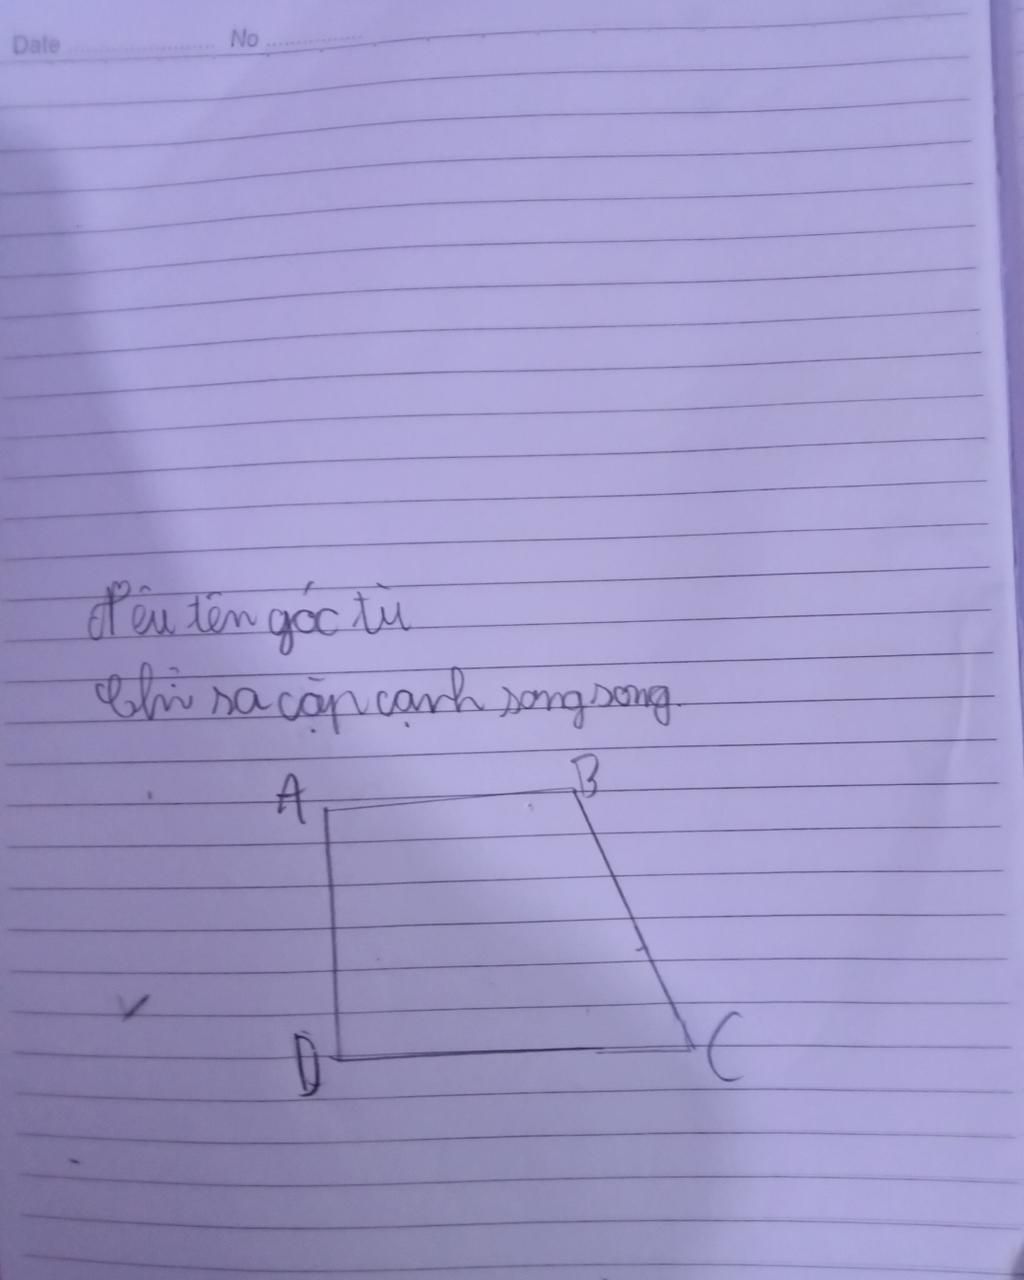 Date ........................ No ................
Nêu tên góc tù
Chỉ ra cặp cạnh song song.
A
B
D
C